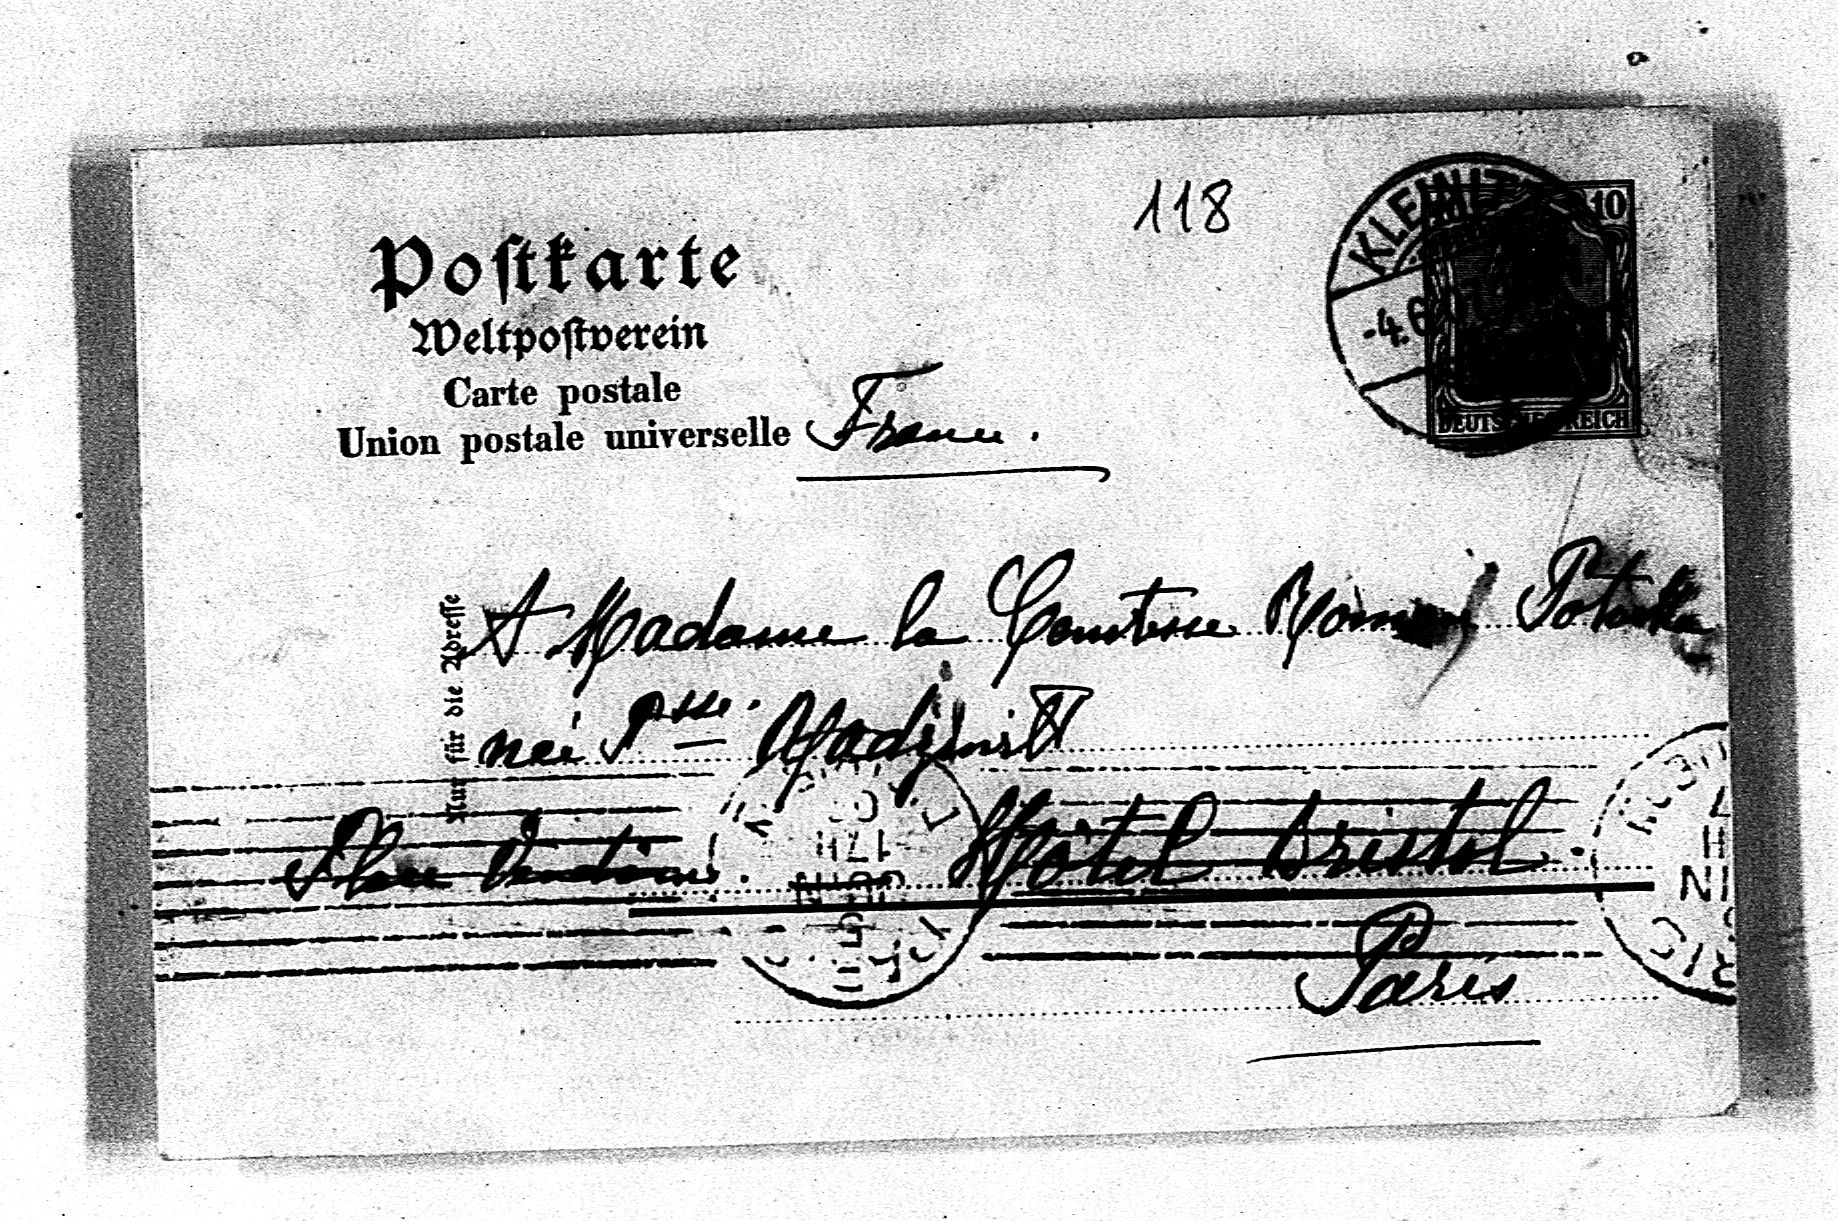 118
KLEINITZ
10
-4.6
DEUTSCHES REICH
Postkarte
Weltpostverein
Carte postale
Union postale universelle
France.
Nur für die Adresse
A Madame la Comtesse Roman Potocka
née Psse. Radziwill
Place Vendôme. Hôtel Bristol.
Paris